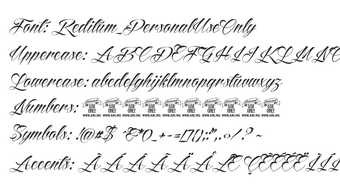 Font: Reditum_PersonalUseOnly
Uppercase: ABCDEFGHIJKLMN
Lowercase: abcdefghijklmnopqrstuvwxyz
Numbers:
Symbols: .!@#$ €*()_+-=[]{};:",.‹›/.? ~
Accents: